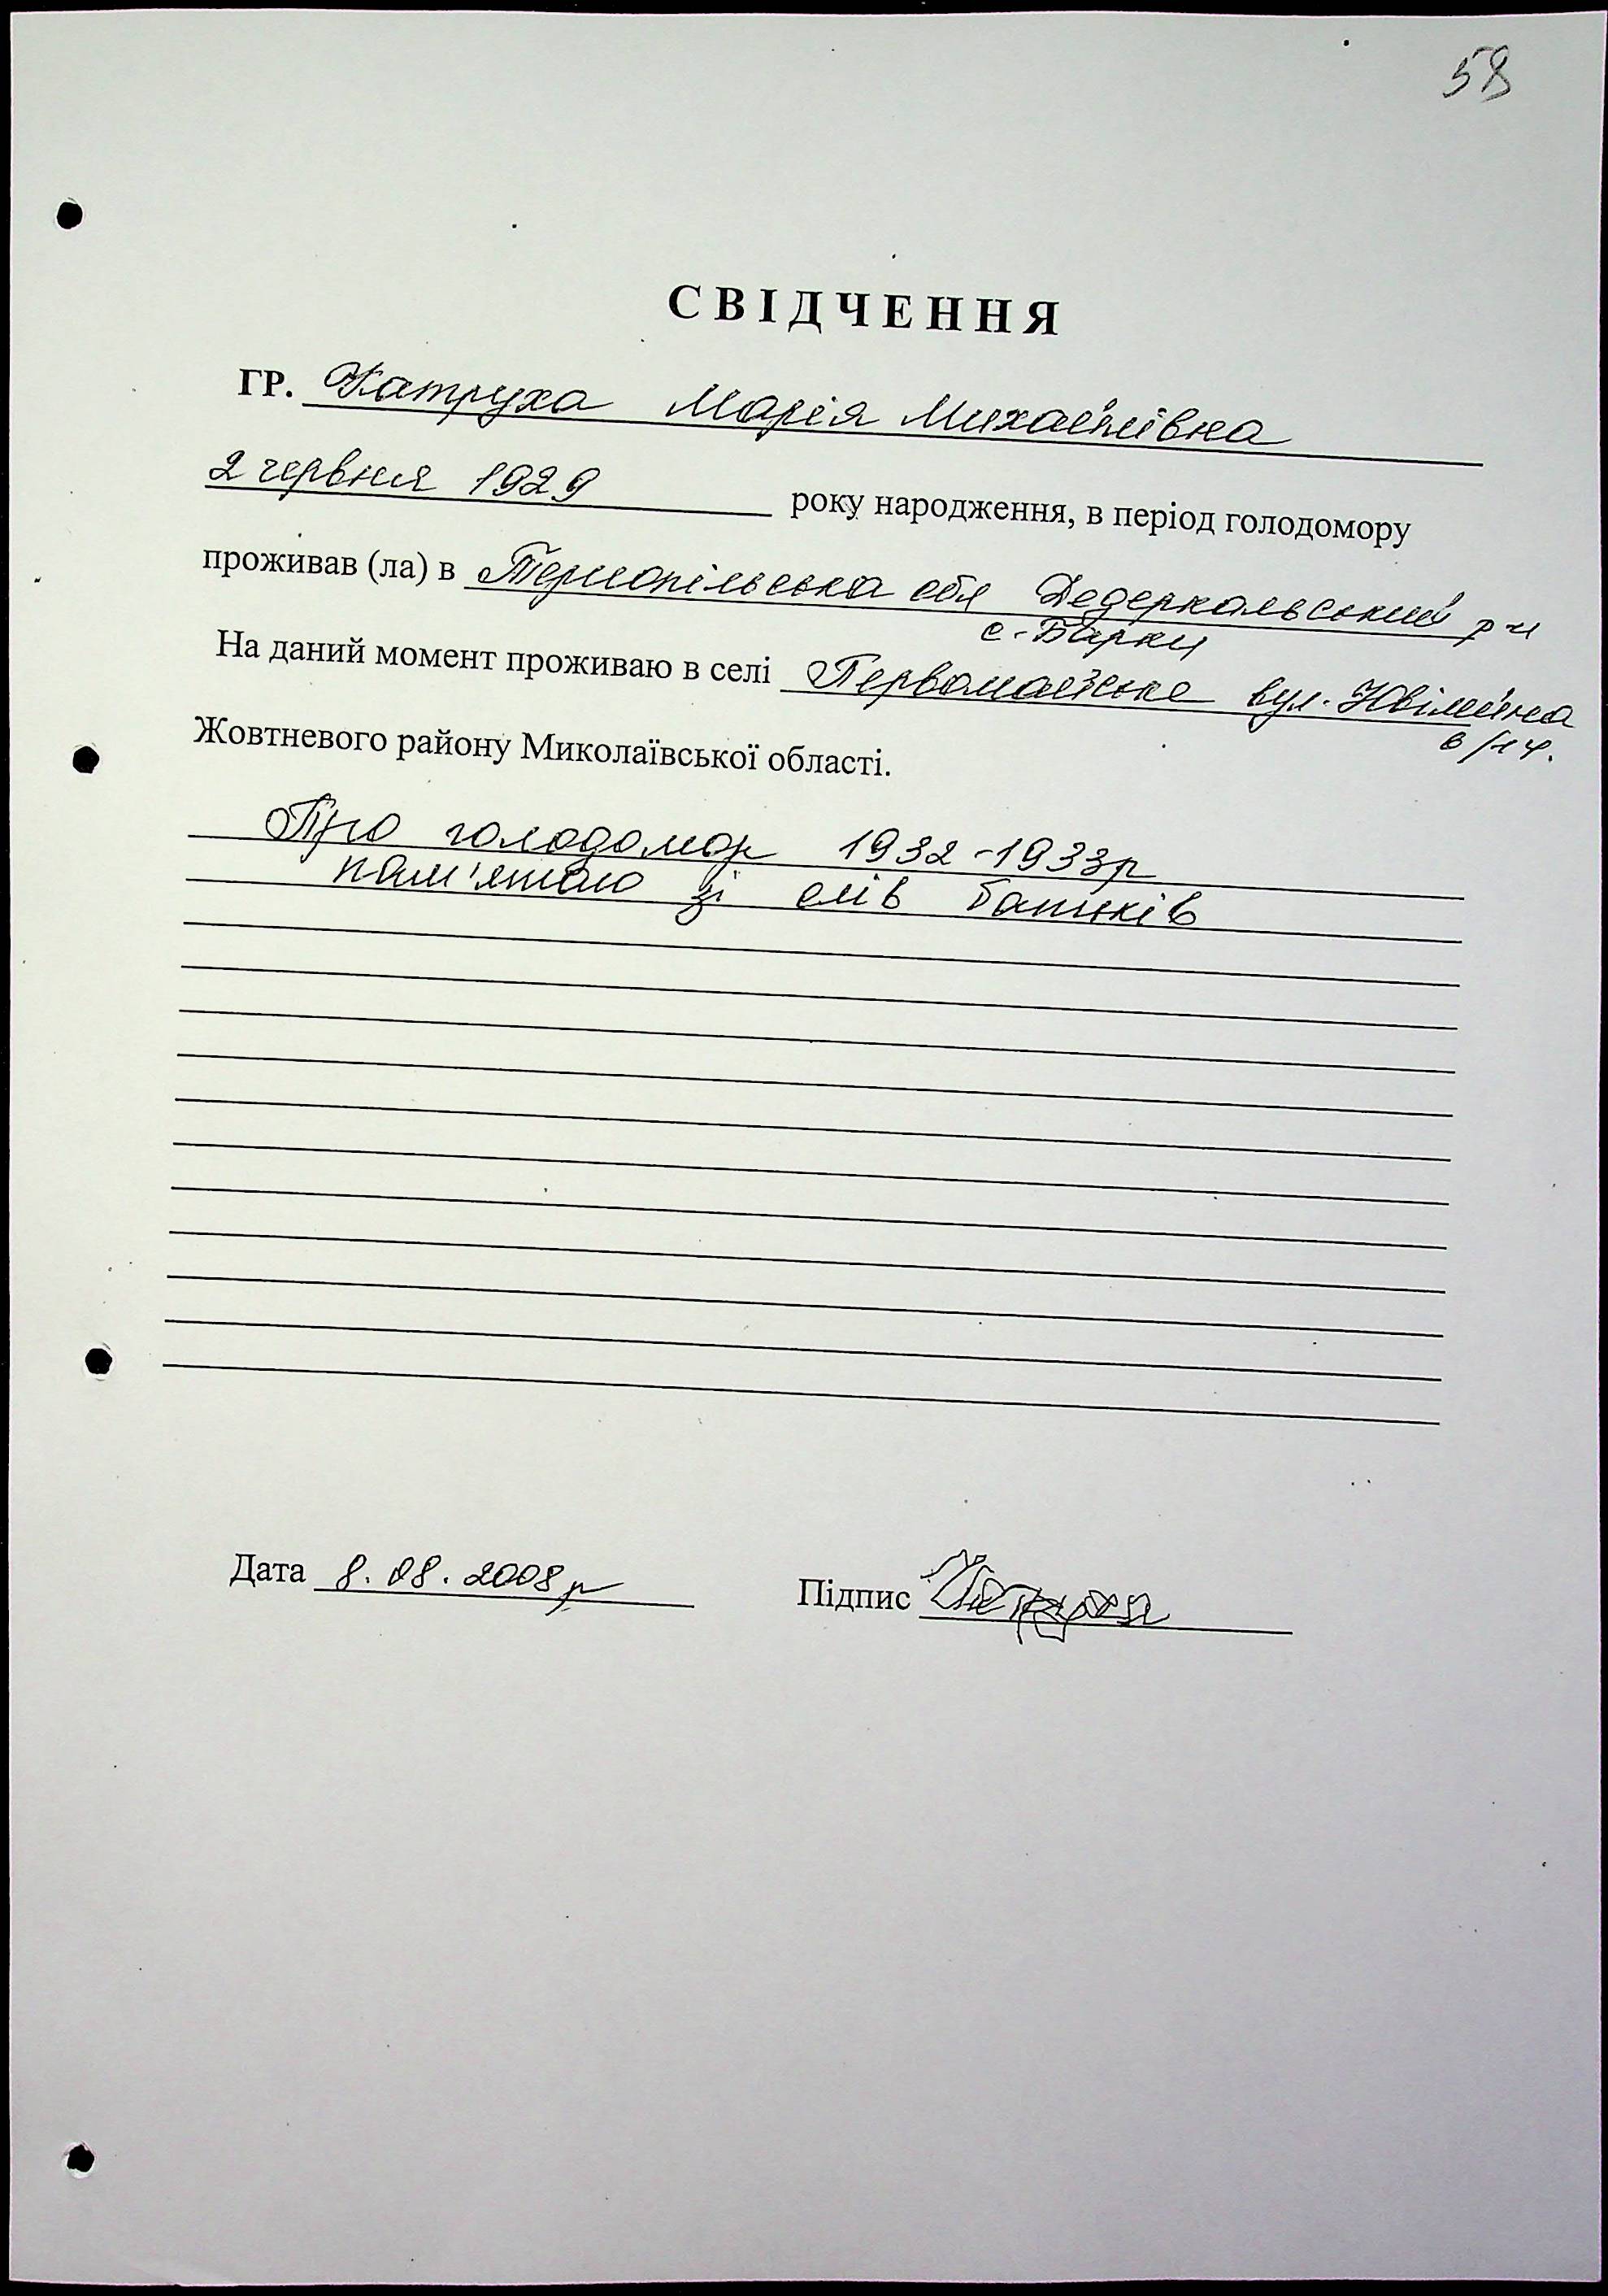 58
СВІДЧЕННЯ
ГР. Катруха Марія Михайлівна
2 червня 1929 року народження, в період голодомору
проживав (ла) в Тернопільська обл Дедеркальський р-н
с. Барки
На даний момент проживаю в селі Первомайське вул. Ювілейна
6/14.
Жовтневого району Миколаївської області.
Про голодомор 1932-1933р
пам'ятаю зі слів батьків
Дата 8.08.2008р Підпис